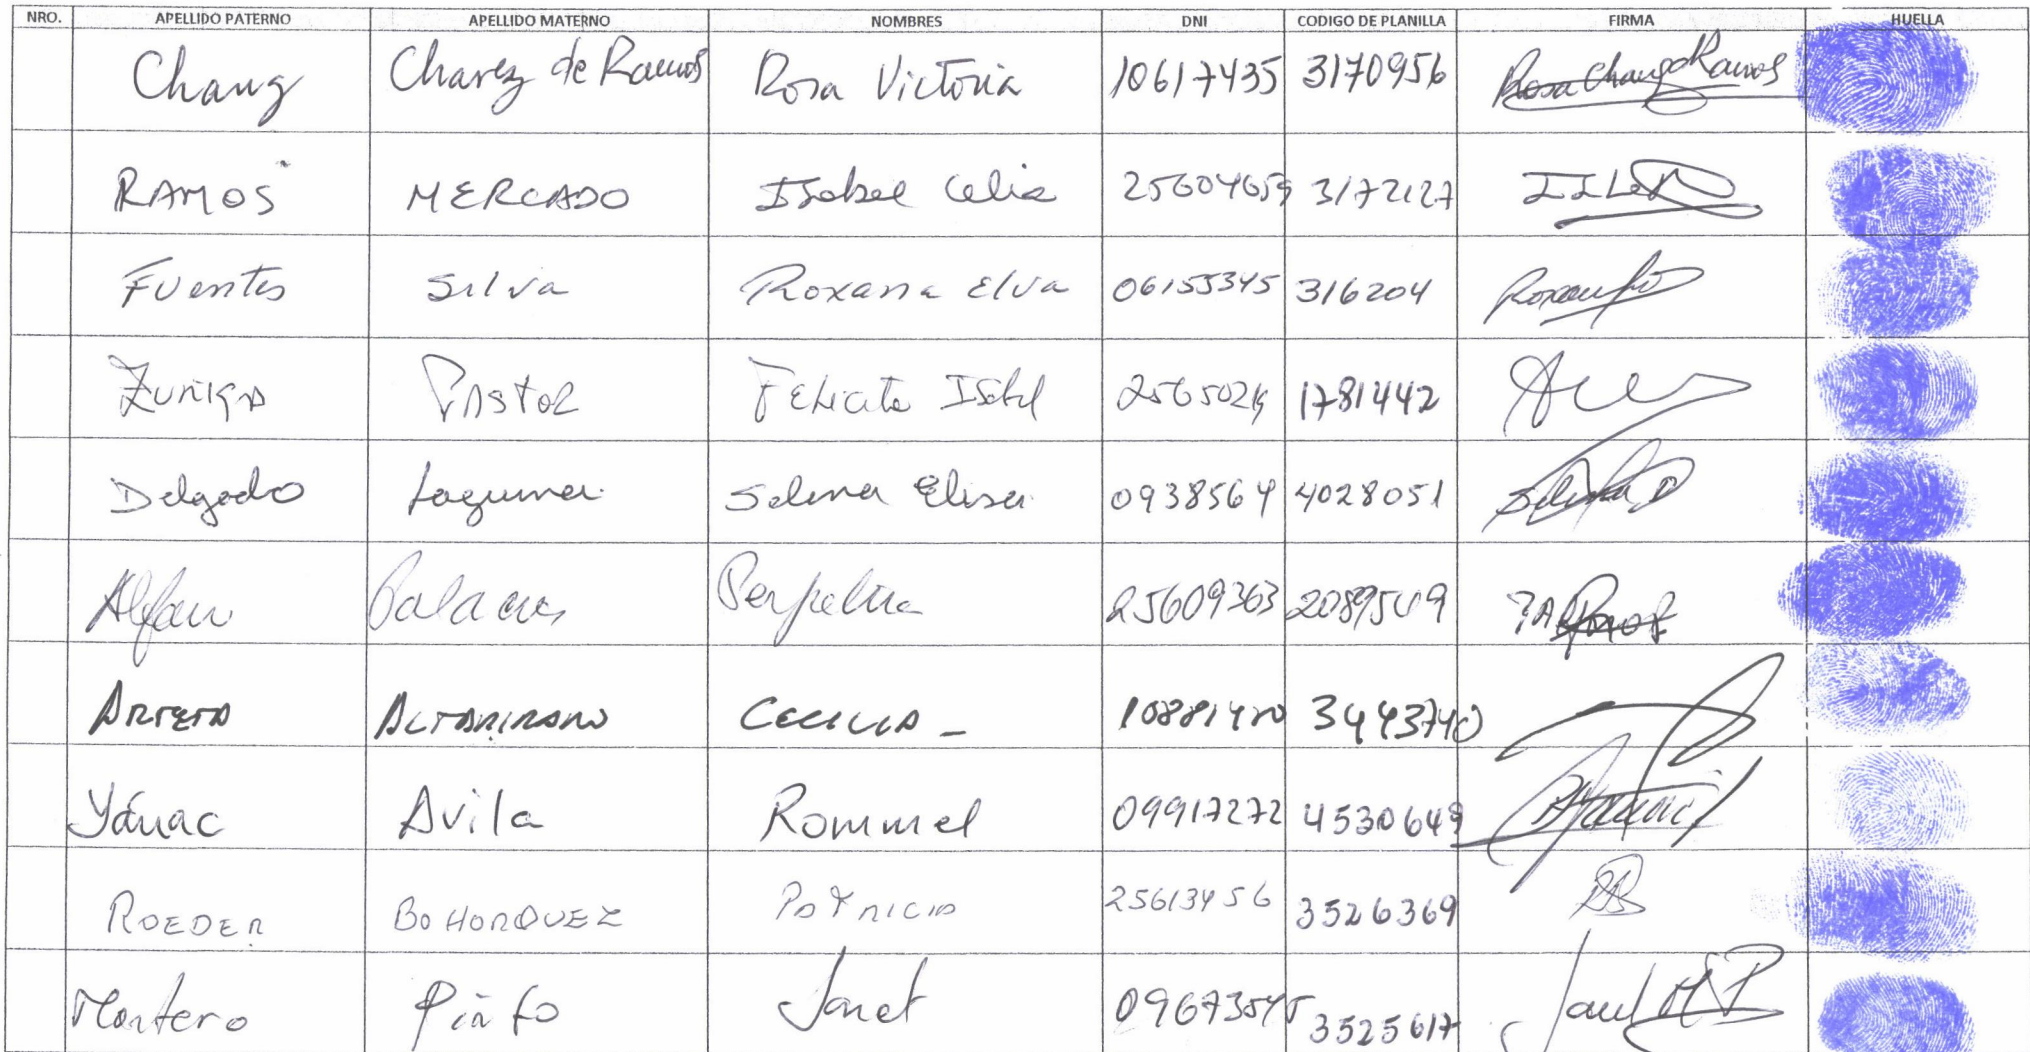 NRO. APELLIDO PATERNO APELLIDO MATERNO NOMBRES DNI CODIGO DE PLANILLA FIRMA HUELLA
Chang Chavez de Ramos Rosa Victoria 10617435 3170956 Rosa Chang d Ramos
RAMOS MERCADO Isabel Celia 25604659 3172127
Fuentes Silva Roxana Elva 06155345 316204
Zuñiga Pastor Felicita Isabel 1781442
Delgado Laguna Selena Elisa 0938564 4028051
Alfaro Palacios Perpetua 25609363 2089509
ARTETA ALTAMIRANO CECILIA - 3443740
Yánac Avila Rommel 09917272 4530649
ROEDER BOHORQUEZ PATRICIA 25613456 3526369
Montero Pinto Janet 3525617